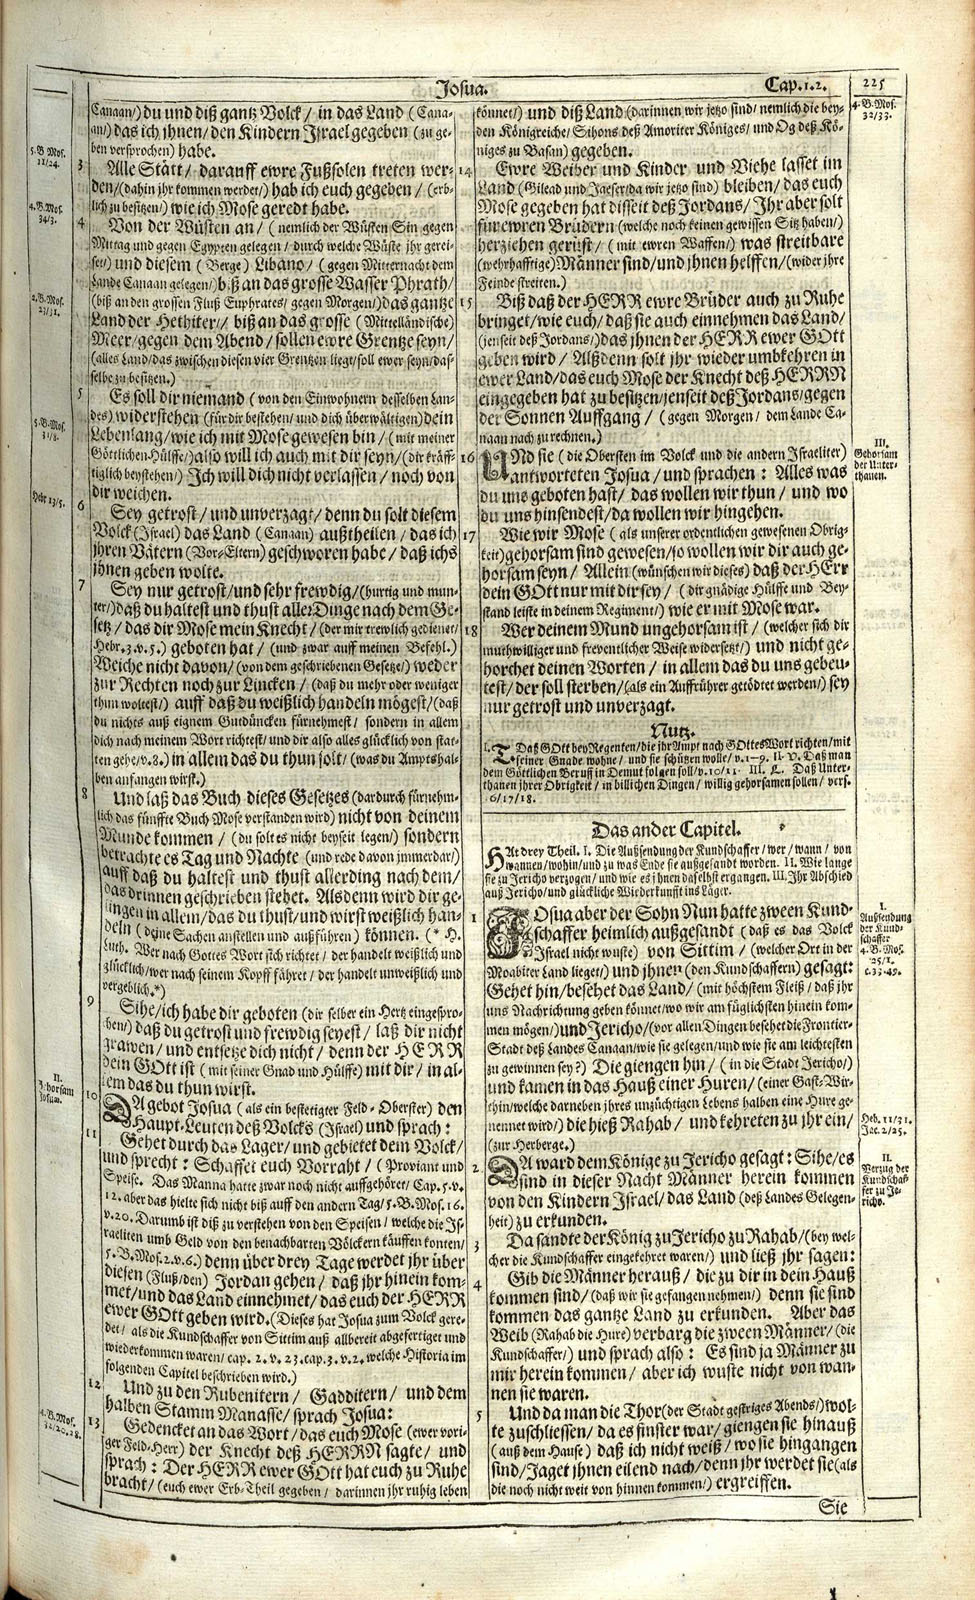 Josua.
Cap. 1. 2.
225
Canaan/) du und diß gantz Volck / in das Land (Cana-
an/) das ich jhnen / den Kindern Jsrael gegeben (zu ge-
ben versprochen) habe.
5. B Mos.
11/24.
3 Alle Stätt / darauff ewre Fußsolen treten wer-
den / (dahin jhr kommen werdet/) hab ich euch gegeben / (erb-
lich zu besitzen/) wie ich Mose geredt habe.
4. B. Mos.
34/3.
4 Von der Wüsten an / (nemlich der Wüsten Sin gegen
Mittag und gegen Egypten gelegen / durch welche Wüste jhr gerei-
set/) und diesem (Berge) Libano / (gegen Mitternacht dem
Lande Canaan gelegen/) biß an das grosse Wasser Phrath /
(biß an den grossen Fluß Euphrates / gegen Morgen/) das gantze
Land der Hethiter / biß an das grosse (Mittelländische)
Meer / gegen dem Abend / sollen ewre Grentze seyn /
(alles Land / das zwischen diesen vier Grentzen liegt / soll ewer seyn / das-
selbe zu besitzen.)
2. B. Mos.
23/31.
5 Es soll dir niemand (von den Einwohnern desselben Lan-
des) widerstehen (für dir bestehen / und dich überwältigen) dein
Lebenlang / wie ich mit Mose gewesen bin / (mit meiner
Göttlichen Hülffe/) also will ich auch mit dir seyn / (dir kräff-
tiglich beystehen) Jch will dich nicht verlassen / noch von
dir weichen.
5. B. Mos.
31/8.
Hebr 13/5.
6 Sey getrost / und unverzagt / denn du solt diesem
Volck (Israel) das Land (Canaan) außtheilen / das ich
jhren Vätern (Vor-Eltern) geschworen habe / daß ichs
jhnen geben wolte.
7 Sey nur getrost / und sehr frewdig / (hurtig und mun-
ter/) daß du haltest und thust aller Dinge nach dem Ge-
setz / das dir Mose mein Knecht / (der mir trewlich gedienet /
Hebr. 3. v. 5.) geboten hat / (und zwar auff meinen Befehl.)
Weiche nicht davon / (von dem geschriebenen Gesetze/) weder
zur Rechten noch zur Lincken / (daß du mehr oder weniger
thun woltest/) auff daß du weißlich handeln mögest / (daß
du nichts auß eignem Gutdüncken fürnehmest / sondern in allem
dich nach meinem Wort richtest / und dir also alles glücklich von stat-
ten gehe / v. 8.) in allem das du thun solt / (was du Amptshal-
ben anfangen wirst.)
8 Und laß das Buch dieses Gesetzes (dardurch fürnehm-
lich das fünffte Buch Mose verstanden wird) nicht von deinem
Munde kommen / (du solt es nicht beyseit legen/) sondern
betrachte es Tag und Nachte (und rede davon immerdar/)
auff daß du haltest und thust allerding nach dem /
das drinnen geschrieben stehet. Als denn wird dir ge-
lingen in allem / das du thust / und wirst weißlich han-
deln (deine Sachen anstellen und außführen) können. (* H.
Luth. Wer nach Gottes Wort sich richtet / der handelt weißlich und
glücklich / wer nach seinem Kopff fähret / der handelt unweißlich und
vergeblich. *)
9 Sihe / ich habe dir geboten (dir selber ein Hertz eingespro-
chen/) daß du getrost und frewdig seyest / laß dir nicht
grawen / und entsetze dich nicht / denn der HERR
dein GOtt ist (mit seiner Gnad und Hülffe) mit dir / in al-
lem das du thun wirst.
II.
Gehorsam
Josuae.
10 DA gebot Josua (als ein bestetigter Feld-Oberster) den
Haupt-Leuten deß Volcks (Israel) und sprach:
11 Gehet durch das Lager / und gebietet dem Volck /
und sprecht: Schaffet euch Vorraht / (Proviant und
Speise. Das Manna hatte zwar noch nicht auffgehöret / Cap. 5. v.
12. aber das hielte sich nicht biß auff den andern Tag / 5. B. Mos. 16.
v. 20. Darumb ist diß zu verstehen von den Speisen / welche die Is-
raeliten umb Geld von den benachbarten Völckern käuffen konten /
5. B. Mos. 2. v. 6.) denn über drey Tage werdet jhr über
diesen (Fluß / den) Jordan gehen / daß jhr hinein kom-
met / und das Land einnehmet / das euch der HERR
ewer GOtt geben wird. (Dieses hat Josua zum Volck gere-
det / als die Kundschaffer von Sittim auß allbereit abgefertiget und
wiederkommen waren / cap. 2. v. 23. cap. 3. v. 2. welche Historia im
folgenden Capitel beschrieben wird.)
12 Und zu den Rubenitern / Gadditern / und dem
halben Stamm Manasse / sprach Josua:
4. B. Mos.
32/20. 28.
13 Gedencket an das Wort / das euch Mose (ewer vori-
ger Feld-Herr) der Knecht deß HERRN sagte / und
sprach: Der HERR ewer GOtt hat euch zu Ruhe
bracht / (euch ewer Erb-Theil gegeben / darinnen jhr ruhig leben
könnet/) und diß Land (darinnen wir jetzo sind / nemlich die bey-
den Königreiche / Sihons deß Amoriter Königes / und Og deß Kö-
niges zu Basan) gegeben.
4. B. Mos.
32/33.
14 Ewre Weiber und Kinder und Viehe lasset im
Land (Gilead und Jaeser / da wir jetzo sind) bleiben / das euch
Mose gegeben hat disseit deß Jordans / Jhr aber solt
für ewren Brüdern (welche noch keinen gewissen Sitz haben/)
herziehen gerüst / (mit ewren Waffen/) was streitbare
(wehrhafftige) Männer sind / und jhnen helffen / (wider jhre
Feinde streiten.)
15 Biß daß der HERR ewre Brüder auch zu Ruhe
bringet / wie euch / daß sie auch einnehmen das Land /
(jenseit deß Jordans/) das jhnen der HERR ewer GOtt
geben wird / Alßdenn solt jhr wieder umbkehren in
ewer Land / das euch Mose der Knecht deß HERRN
eingegeben hat zu besitzen / jenseit deß Jordans / gegen
der Sonnen Auffgang / (gegen Morgen / dem Lande Ca-
naan nach zu rechnen.)
III.
Gehorsam
der Unter-
thanen.
16 UNd sie (die Obersten im Volck und die andern Israeliter)
antworteten Josua / und sprachen: Alles was
du uns geboten hast / das wollen wir thun / und wo
du uns hinsendest / da wollen wir hingehen.
17 Wie wir Mose (als unserer ordentlichen gewesenen Obrig-
keit) gehorsam sind gewesen / so wollen wir dir auch ge-
horsam seyn / Allein (wünschen wir dieses) daß der HErr
dein GOtt nur mit dir sey / (dir gnädige Hülffe und Bey-
stand leiste in deinem Regiment/) wie er mit Mose war.
18 Wer deinem Mund ungehorsam ist / (welcher sich dir
muthwilliger und freventlicher Weise widersetzt/) und nicht ge-
horchet deinen Worten / in allem das du uns gebeu-
test / der soll sterben / (als ein Auffrührer getödtet werden/) sey
nur getrost und unverzagt.
Nutz.
I. Daß GOtt bey Regenten / die jhr Ampt nach GOttes Wort richten / mit
seiner Gnade wohne / und sie schützen wolle / v. 1-9. II. Daß man
dem Göttlichen Beruff in Demut folgen soll / v. 10/11. III. Daß Unter-
thanen jhrer Obrigkeit / in billichen Dingen / willig gehorsamen sollen / vers.
16/17/18.
Das ander Capitel.
HAt drey Theil. I. Die Außsendung der Kundschaffer / wer / wann / von
wannen / wohin / und zu was Ende sie außgesandt worden. II. Wie lange
sie zu Jericho verzogen / und wie es jhnen daselbst ergangen. III. Jhr Abschied
auß Jericho / und glückliche Wiederkunfft ins Läger.
I.
Außsendung
der Kund-
schaffer
4. B. Mos.
25/1.
c. 33-49.
1 JOsua aber der Sohn Nun hatte zween Kund-
schaffer heimlich außgesandt (daß es das Volck
Israel nicht wuste) von Sittim / (welcher Ort in der
Moabiter Land lieget/) und jhnen (den Kundschaffern) gesagt:
Gehet hin / besehet das Land / (mit höchstem Fleiß / daß jhr
uns Nachrichtung geben könnet / wo wir am füglichsten hinein kom-
men mögen/) und Jericho / (vor allen Dingen besehet die Frontier-
Stadt deß Landes Canaan / wie sie gelegen / und wie sie am leichtesten
zu gewinnen sey?) Die giengen hin / (in die Stadt Jericho/)
und kamen in das Hauß einer Huren / (einer Gast-Wir-
thin / welche darneben jhres unzüchtigen Lebens halben eine Hure ge-
nennet wird/) die hieß Rahab / und kehreten zu jhr ein /
(zur Herberge.)
Heb. 11/31.
Jac. 2/25.
II.
Verzug der
Kundschaf-
fer zu Je-
richo.
2 DA ward dem Könige zu Jericho gesagt: Sihe / es
sind in dieser Nacht Männer herein kommen
von den Kindern Israel / das Land (deß Landes Gelegen-
heit) zu erkunden.
3 Da sandte der König zu Jericho zu Rahab / (bey wel-
cher die Kundschaffer eingekehret waren/) und ließ jhr sagen:
Gib die Männer herauß / die zu dir in dein Hauß
4 kommen sind / (daß wir sie gefangen nehmen/) denn sie sind
kommen das gantze Land zu erkunden. Aber das
Weib (Rahab die Hure) verbarg die zween Männer / (die
Kundschaffer/) und sprach also: Es sind ja Männer zu
mir herein kommen / aber ich wuste nicht von wan-
nen sie waren.
5 Und da man die Thor (der Stadt gestriges Abends/) wol-
te zuschliessen / da es finster war / giengen sie hinauß
(auß dem Hause) daß ich nicht weiß / wo sie hingangen
sind / Jaget jhnen eilend nach / denn jhr werdet sie (als
die noch nicht weit von hinnen kommen/) ergreiffen.
Sie